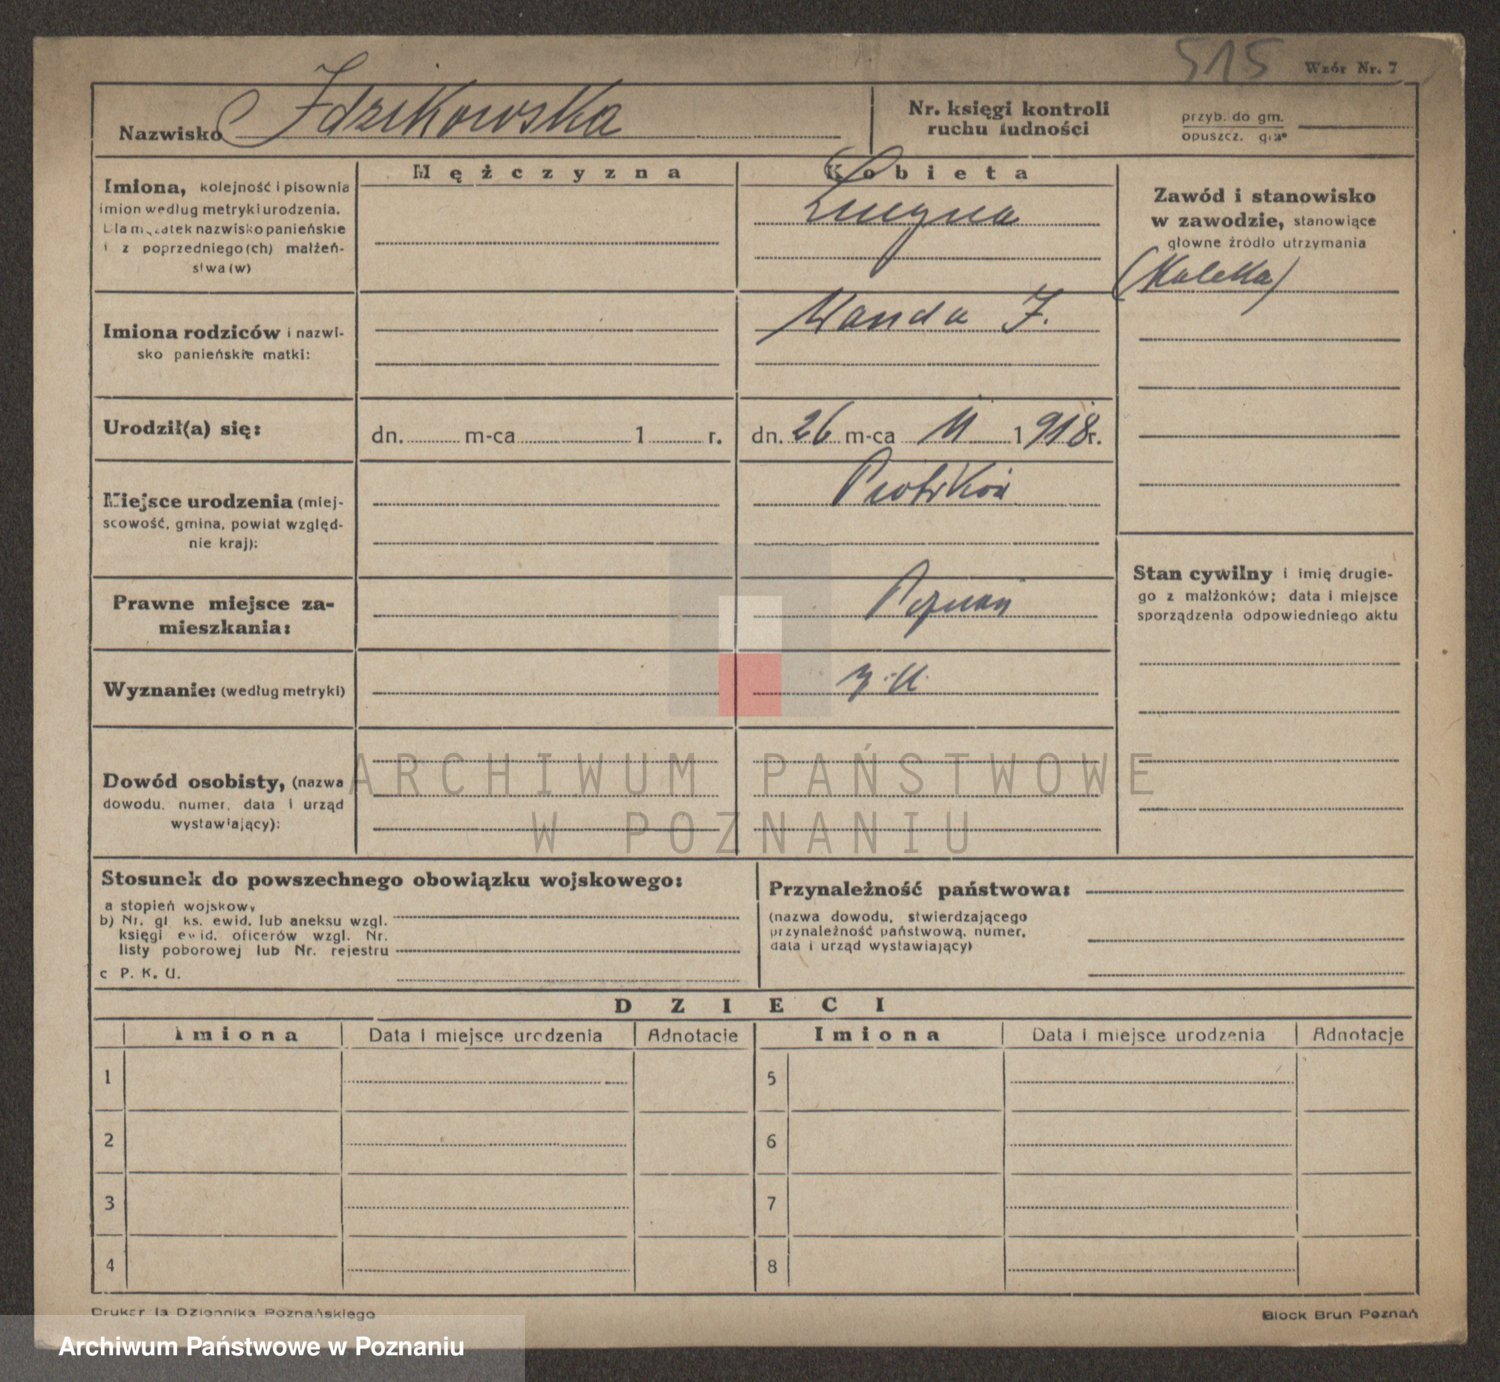 515
Wzór Nr. 7
Nazwisko Idzikowska
Nr. księgi kontroli
ruchu ludności
przyb. do gm.
opuszcz. gm.
Mężczyzna
Kobieta
Imiona, kolejność i pisownia
imion według metryki urodzenia.
Dla mężatek nazwisko panieńskie
i z poprzedniego(ch) małżeń-
stwa(w)
Lucyna
Zawód i stanowisko
w zawodzie, stanowiące
główne źródło utrzymania
(Kaleka)
Imiona rodziców i nazwi-
sko panieńskie matki:
Wanda I.
Urodził(a) się:
dn. m-ca 1 r.
dn. 26 m-ca 11 1918 r.
Miejsce urodzenia (miej-
scowość, gmina, powiat względ-
nie kraj):
Piotrków
Prawne miejsce za-
mieszkania:
Poznań
Stan cywilny i imię drugie-
go z małżonków; data i miejsce
sporządzenia odpowiedniego aktu
Wyznanie: (według metryki)
Dowód osobisty, (nazwa
dowodu, numer, data i urząd
wystawiający):
ARCHIWUM PAŃSTWOWE
W POZNANIU
Stosunek do powszechnego obowiązku wojskowego:
a stopień wojskowy
b) Nr. gl. ks. ewid. lub aneksu wzgl.
księgi ewid. oficerów wzgl. Nr.
listy poborowej lub Nr. rejestru
c P. K. U.
Przynależność państwowa:
(nazwa dowodu, stwierdzającego
przynależność państwową, numer,
data i urząd wystawiający)
DZIECI
Imiona Data i miejsce urodzenia Adnotacje Imiona Data i miejsce urodzenia Adnotacje
1 5
2 6
3 7
4 8
Drukarnia Dziennika Poznańskiego
Block Brun Poznań
Archiwum Państwowe w Poznaniu